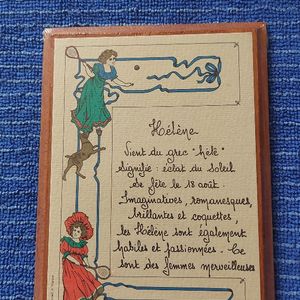 Hélène
Vient du grec "hêlê"
Signifie : éclat du soleil
Se fête le 18 août.
Imaginatives, romanesques,
brillantes et coquettes,
les Hélène sont également
habiles et passionnées. Ce
sont des femmes merveilleuses